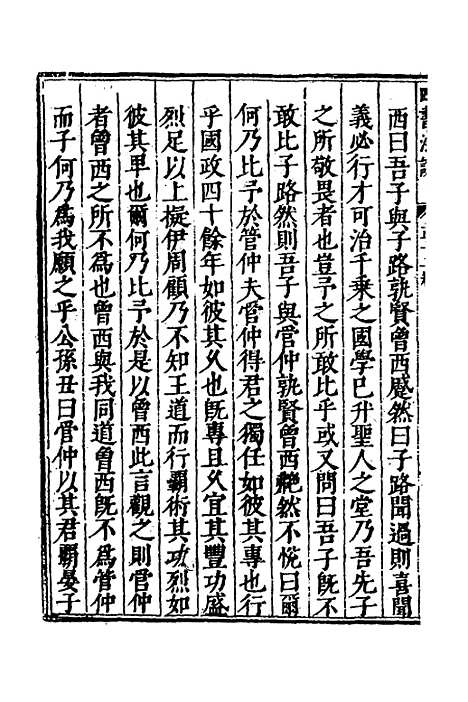 西曰吾子與子路孰賢曾西蹙然曰子路聞過則喜聞
義必行才可治千乘之國學已升聖人之堂乃吾先子
之所敬畏者也豈予之所敢比乎或又問曰吾子既不
敢比子路然則吾子與管仲孰賢曾西艴然不悅曰爾
何乃比予於管仲夫管仲得君之獨任如彼其專也行
乎國政四十餘年如彼其久也既專且久宜其豐功盛
烈足以上擬伊周顧乃不知王道而行霸術其功烈如
彼其卑也爾何乃比予於是以曾西此言觀之則管仲
者曾西之所不為也曾西與我同道曾西既不為管仲
而子何乃為我願之乎公孫丑曰管仲以其君霸晏子